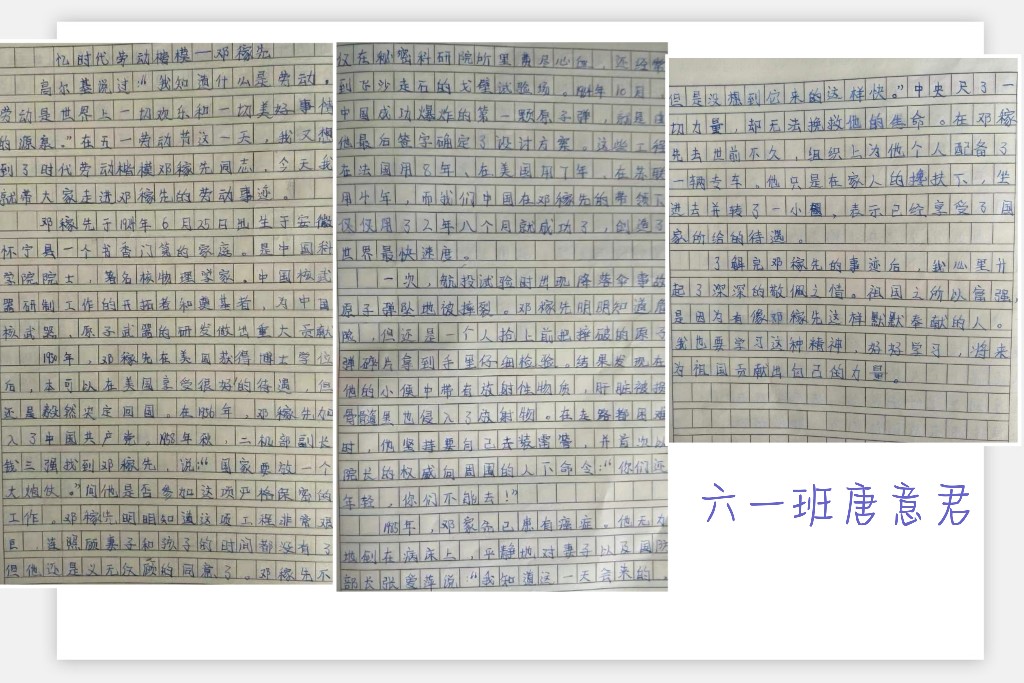 忆时代劳动楷模一邓稼先
高尔基说过:“我知道什么是劳动。
劳动是世界上一切欢乐和一切美好事情
的源泉。”在五一劳动节这一天,我又想
到了时代劳动楷模邓稼先同志,今天我
就带大家走进邓稼先的劳动事迹。
邓稼先于1924年6月25日出生于安徽
怀宁县一个书香门第的家庭。是中国科
学院院士,著名核物理学家。中国核武
器研制工作的开拓者和奠基者,为中国
核武器、原子武器的研发做出重大贡献
1950年,邓稼先在美国获得博士学位
后,本可以在美国享受很好的待遇,但
还是毅然决定回国。在1956年,邓稼先加
入了中国共产党。1958年秋,二机部副长
钱三强找到邓稼先,说:“国家要放一个
大炮仗。”问他是否参加这项严格保密的
工作。邓稼先明明知道这项工程非常艰
巨 连照顾妻子和孩子的时间都没有了
但他还是义无反顾的同意了。邓稼先不
仅在秘密科研院所里费尽心血,还经常
到飞沙走石的戈壁试验场。1964年10月
中国成功爆炸的第一颗原子弹,就是由
他最后签字确定了设计方案。这些工程
在法国用8年、在美国用7年、在苏联
用4年,而我们中国在邓稼先的带领下
仅仅用了2年八个月就成功了,创造了
世界最快速度。
一次,航投试验时出现降落伞事故
原子弹坠地被摔裂。邓稼先明明知道危
险,但还是一个人抢上前把摔破的原子
弹碎片拿到手里仔细检验。结果发现在
他的小便中带有放射性物质,肝脏被损
骨髓里也侵入了放射物。在走路挫困难
时,他坚持要自己去装雷管,并首次以
院长的权威向周围的人下命令:“你们还
年轻,你们不能去!”
1985年,邓家先已患有癌症。他无力
地倒在病床上,平静地对妻子以及国防
部长张爱萍说:“我知道这一天会来的,
但是没想到它来的这样快。”中央尽了一
切力量,却无法挽救他的生命。在邓稼
先去世前不久,组织上为他个人配备了
一辆专车。他只是在家人的搀扶下,坐
进去并转了一小圈,表示已经享受了国
家所给的待遇。
了解完邓稼先的事迹后,我心里升
起了深深的敬佩之情。祖国之所以富强,
是因为有像邓稼先这样默默奉献的人。
我也要学习这种精神,好好学习,将来
为祖国贡献出自己的力量。
六一班唐意君